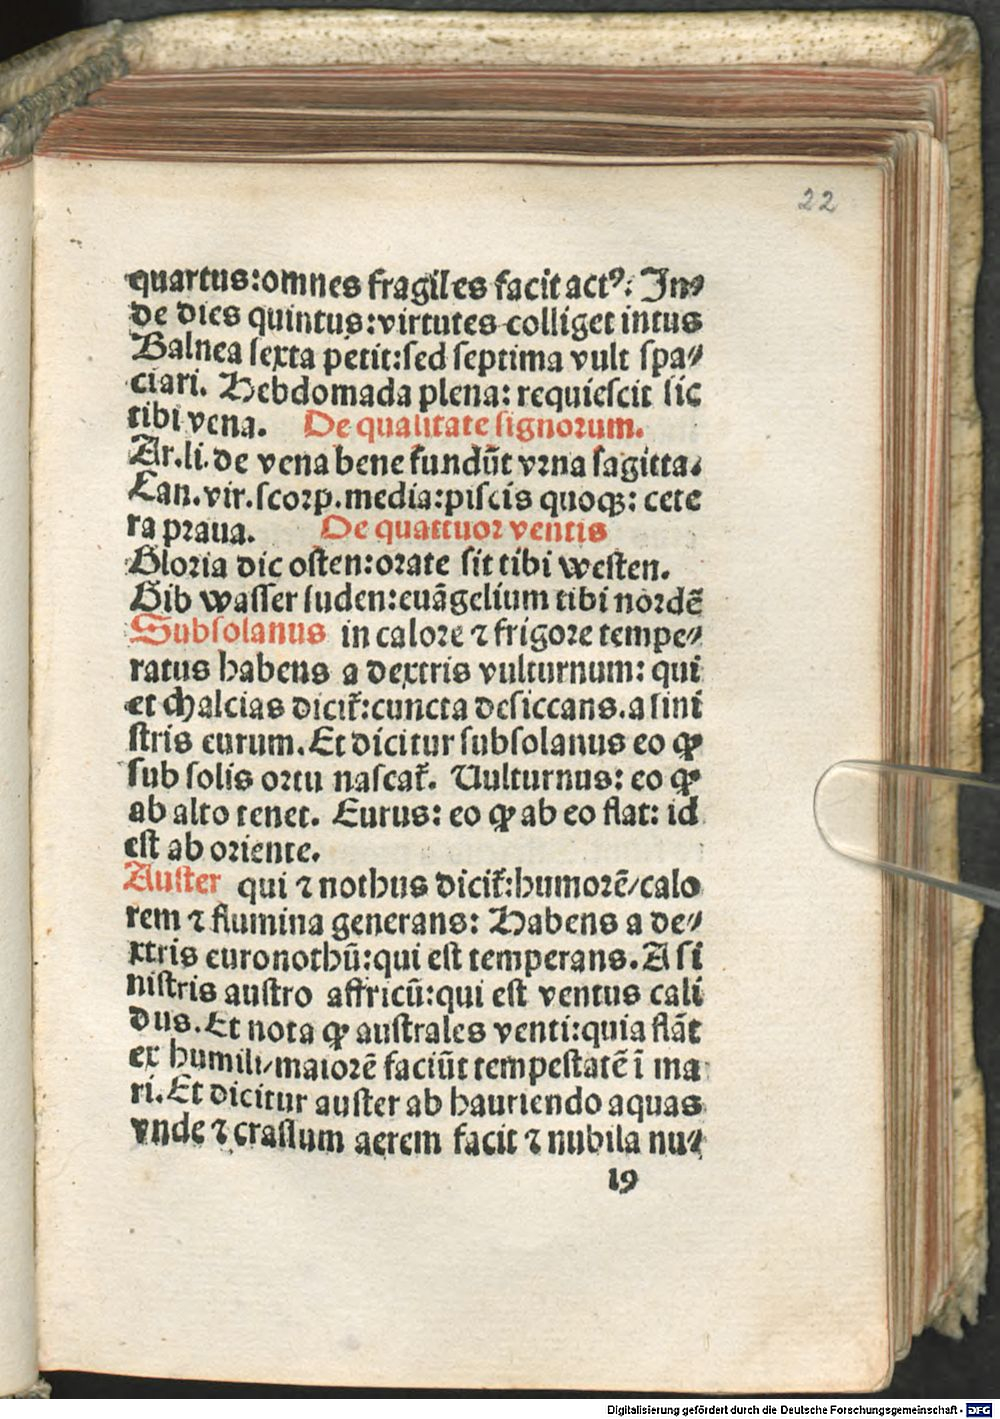 22
quartus:omnes fragiles facit actꝰ: In⸗
de dies quintus:virtutes colliget intus
Balnea sexta petit:sed septima vult spa⸗
ciari. Hebdomada plena: requiescit sic
tibi vena. De qualitate signoꝛum.
Ar.li.de vena bene fundūt vꝛna sagitta.
Can.vir.scoꝛp.media:piscis quoqꝫ: cete
ra pꝛaua. De quattuoꝛ ventis
Gloꝛia dic osten:oꝛate sit tibi westen.
Gib wasser suden:euāgelium tibi noꝛdē
Subsolanus in caloꝛe ⁊ frigoꝛe tempe⸗
ratus habens a dextris vulturnum: qui
et chalcias dicit̃:cuncta desiccans.a sini
stris eurum.Et dicitur subsolanus eo ꝙ
sub solis oꝛtu nascat̃. Uulturnus: eo ꝙ
ab alto tenet. Eurus: eo ꝙ ab eo flat: id
est ab oꝛiente.
Auster qui ⁊ nothus dicit̃:humoꝛē/calo
rem ⁊ flumina generans: Habens a de⸗
xtris euronothū:qui est temperans.A si
nistris austro affricū:qui est ventus cali
dus.Et nota ꝙ australes venti:quia flāt
ex humili/maioꝛē faciūt tempestatē ī ma
ri.Et dicitur auster ab hauriendo aquas
vnde ⁊ crassum aerem facit ⁊ nubila nu⸗
19
Digitalisierung gefördert durch die Deutsche Forschungsgemeinschaft - DFG